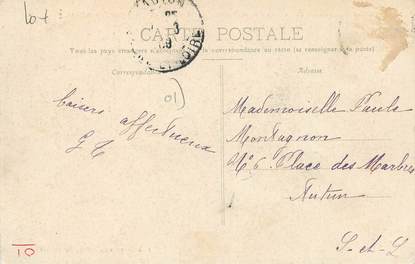 CARTE POSTALE
Tous les pays étrangers n'acceptent pas la correspondance au recto (se renseigner à la poste)
Correspondance
Adresse
baisers affectueux
Mademoiselle Paule
Montagnon
N° 6 Place des Marbres
Autun
S-et-L
01